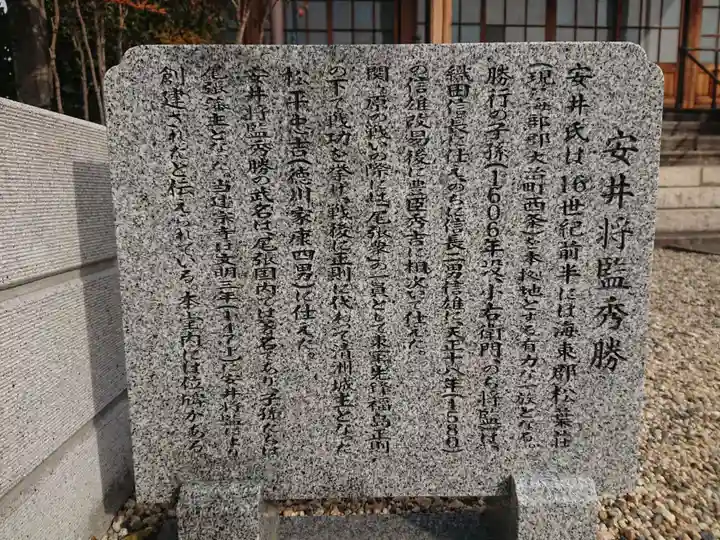 安井将監秀勝
安井氏は16世紀前半には海東郡松葉荘
(現海部郡大治町西条)を本拠地とする有力な一族となる。
勝行の子孫(1606年没小右衛門のち将監)は、
織田信長に仕えのちに信長二男信雄に天正十八年(1588)
の信雄改易後に豊臣秀吉に相次いで仕えた。
関ヶ原の戦いの際には尾張衆の一員として東軍先鋒福島正則
の下で戦功を挙げ、戦後に正則に代わって清洲城主となった
松平忠吉(徳川家康四男)に仕えた。
安井将監秀勝の武名は尾張国内では著名であり子孫たちは
尾張藩士となった。当蓮宗寺は文明三年(1471)に安井将監により
創建されたと伝えられている。本堂内には位牌がある。